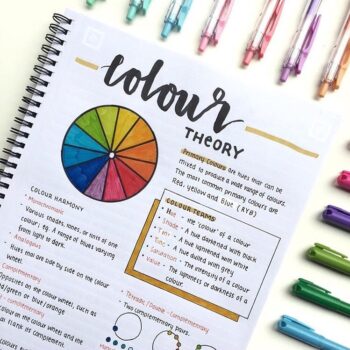 colour
THEORY
Primary Colours are hues that can be
mixed to produce a wide range of colours.
The most common primary colours are
Red, yellow and Blue (RYB)
COLOUR HARMONY
Monochromatic
- Various shades, tones, or tints of one
colour; eg. A range of blues varying
from light to dark.
Analogous
- Hues that are side by side on the colour
wheel.
Complementary
- Opposites on the colour wheel, such as
red/green or blue/orange.
- complementary
on the colour wheel and
complement.
COLOUR TERMS
Hue - the 'colour' of a colour
Shade - A hue darkened with black
Tint - A hue lightened with white
Tone - A hue dulled with grey
Saturation - The intensity of a colour
Value - The lightness or darkness of a
colour.
Tetradic / Double - Complementary
- Two complementary pairs.